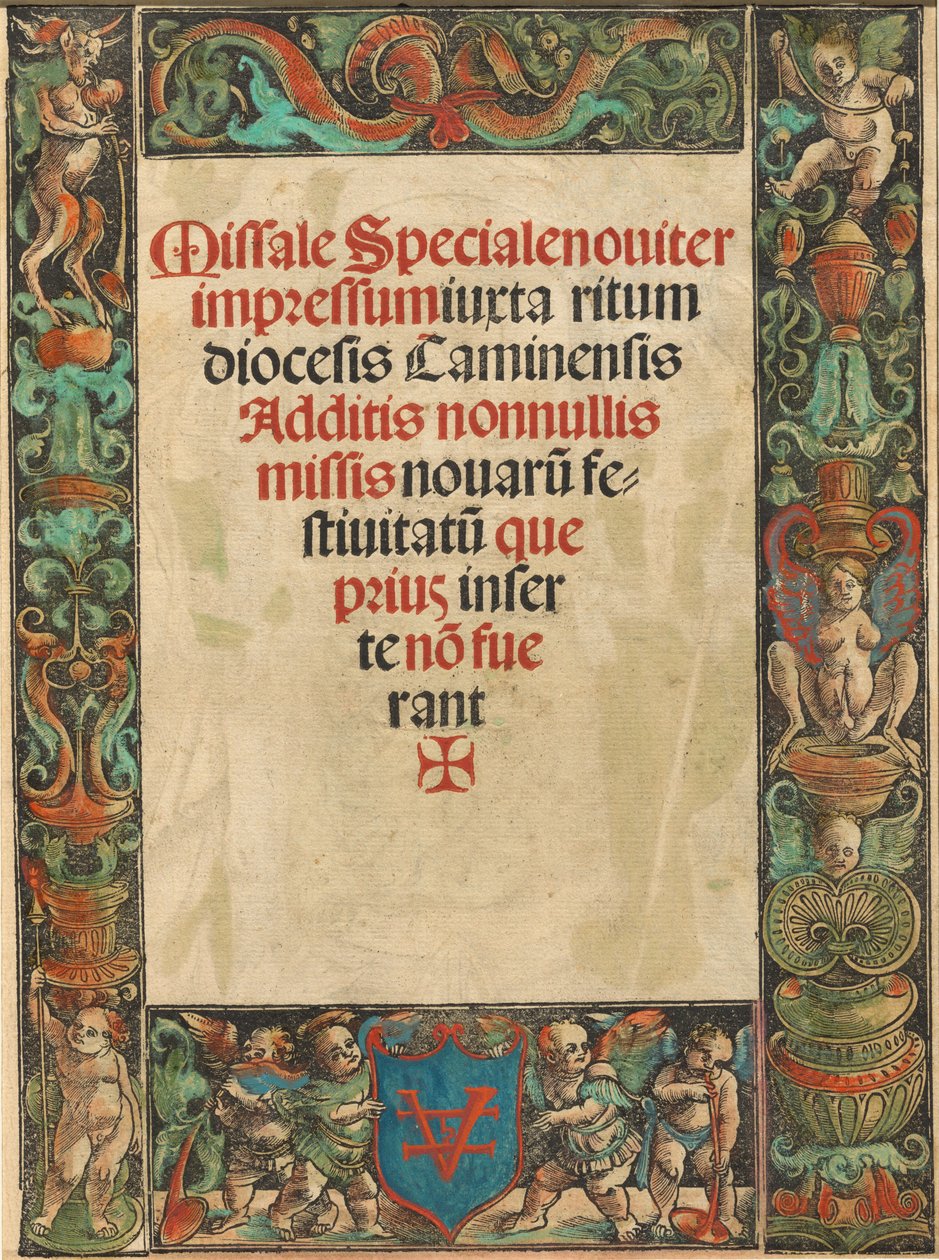 Missale Speciale nouiter
impressum iuxta ritum
diocesis Caminensis
Additis nonnullis
missis nouarū fe⸗
stiuitatū que
prius inser
te nō fue
rant